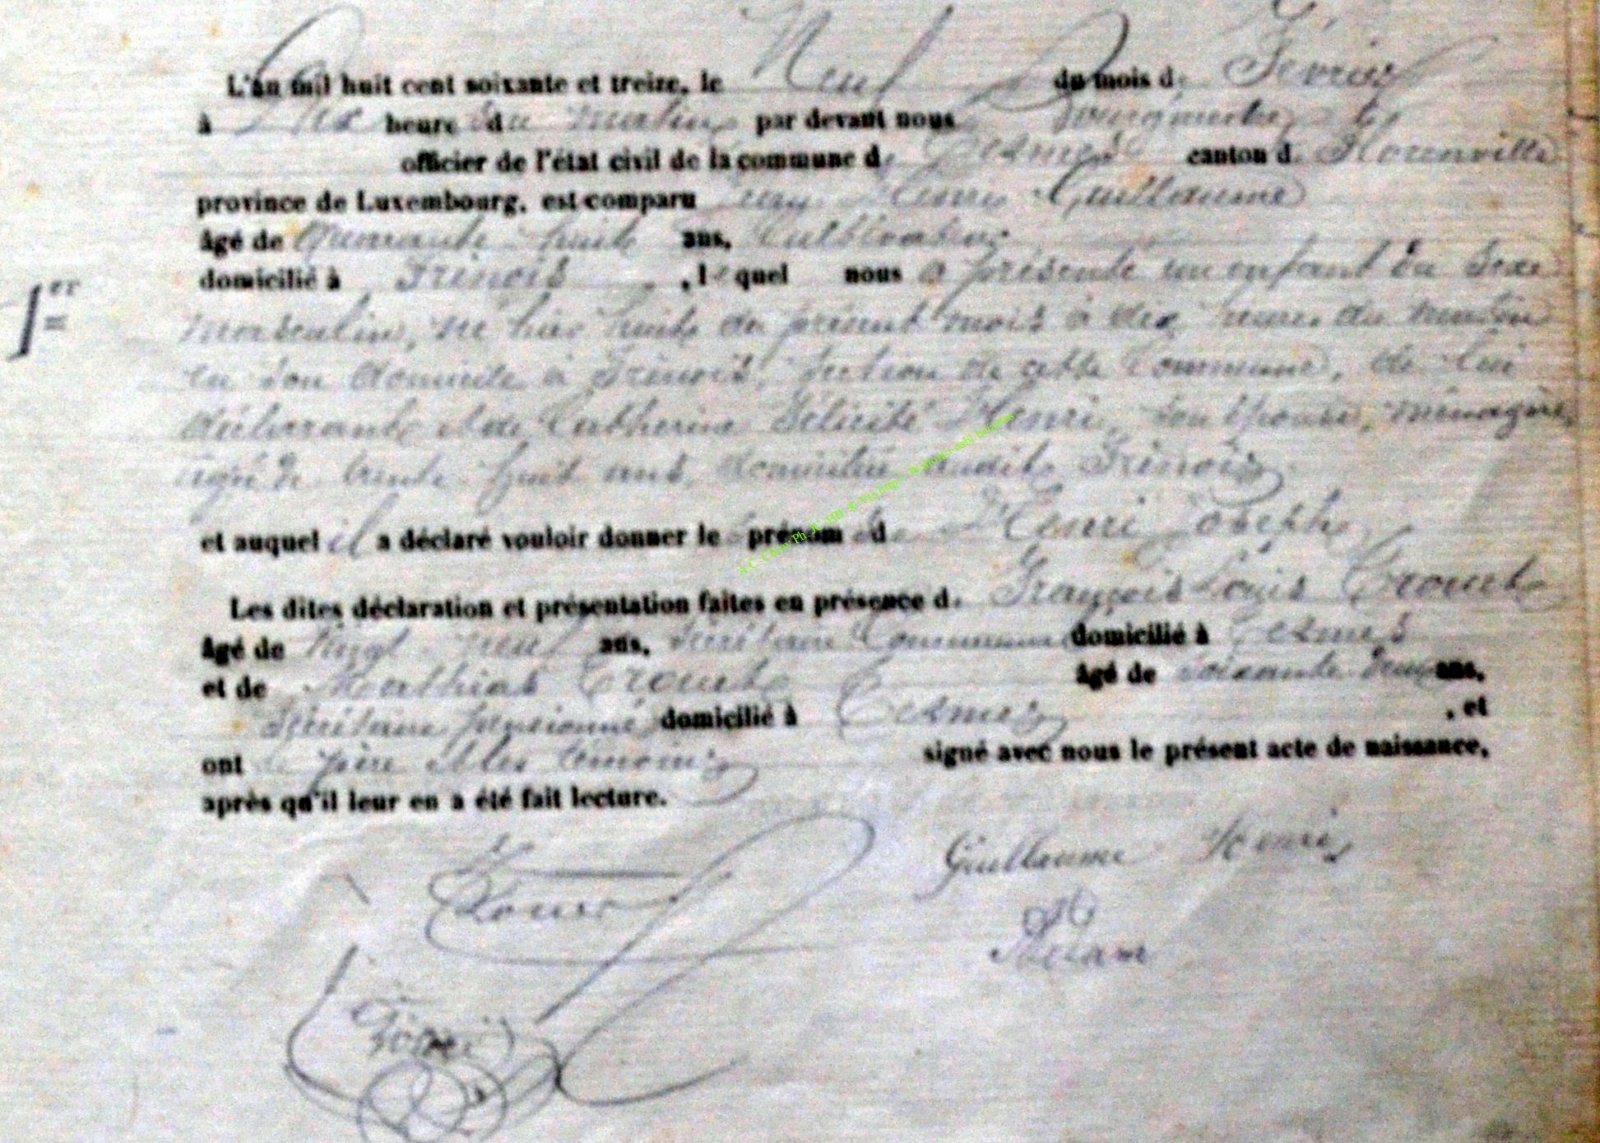 L'an mil huit cent soixante et treize, le Neuf du mois de Février
à Dix heure du matin par devant nous Bourgmestre
officier de l'état civil de la commune de canton de Florenville
province de Luxembourg, est comparu Jean Henri Guillaume
âgé de Quarante huit ans, Cultivateur
domicilié à Frénois, lequel nous a présenté un enfant du sexe
1er
masculin, né hier huit du présent mois à dix heures du matin
en son domicile à Frénois, section de cette Commune, de lui
déclarant et de Catherine Félicité Henri, son épouse, ménagère
âgée de trente huit ans, domiciliée audit Frénois
et auquel il a déclaré vouloir donner le prénom de Henri Joseph
Les dites déclaration et présentation faites en présence de François Louis
âgé de Vingt neuf ans, Secrétaire Communal domicilié à
et de Mathias âgé de soixante deux ans,
Secrétaire pensionné domicilié à , et
ont le père et les témoins signé avec nous le présent acte de naissance,
après qu'il leur en a été fait lecture.
Guillaume Henri